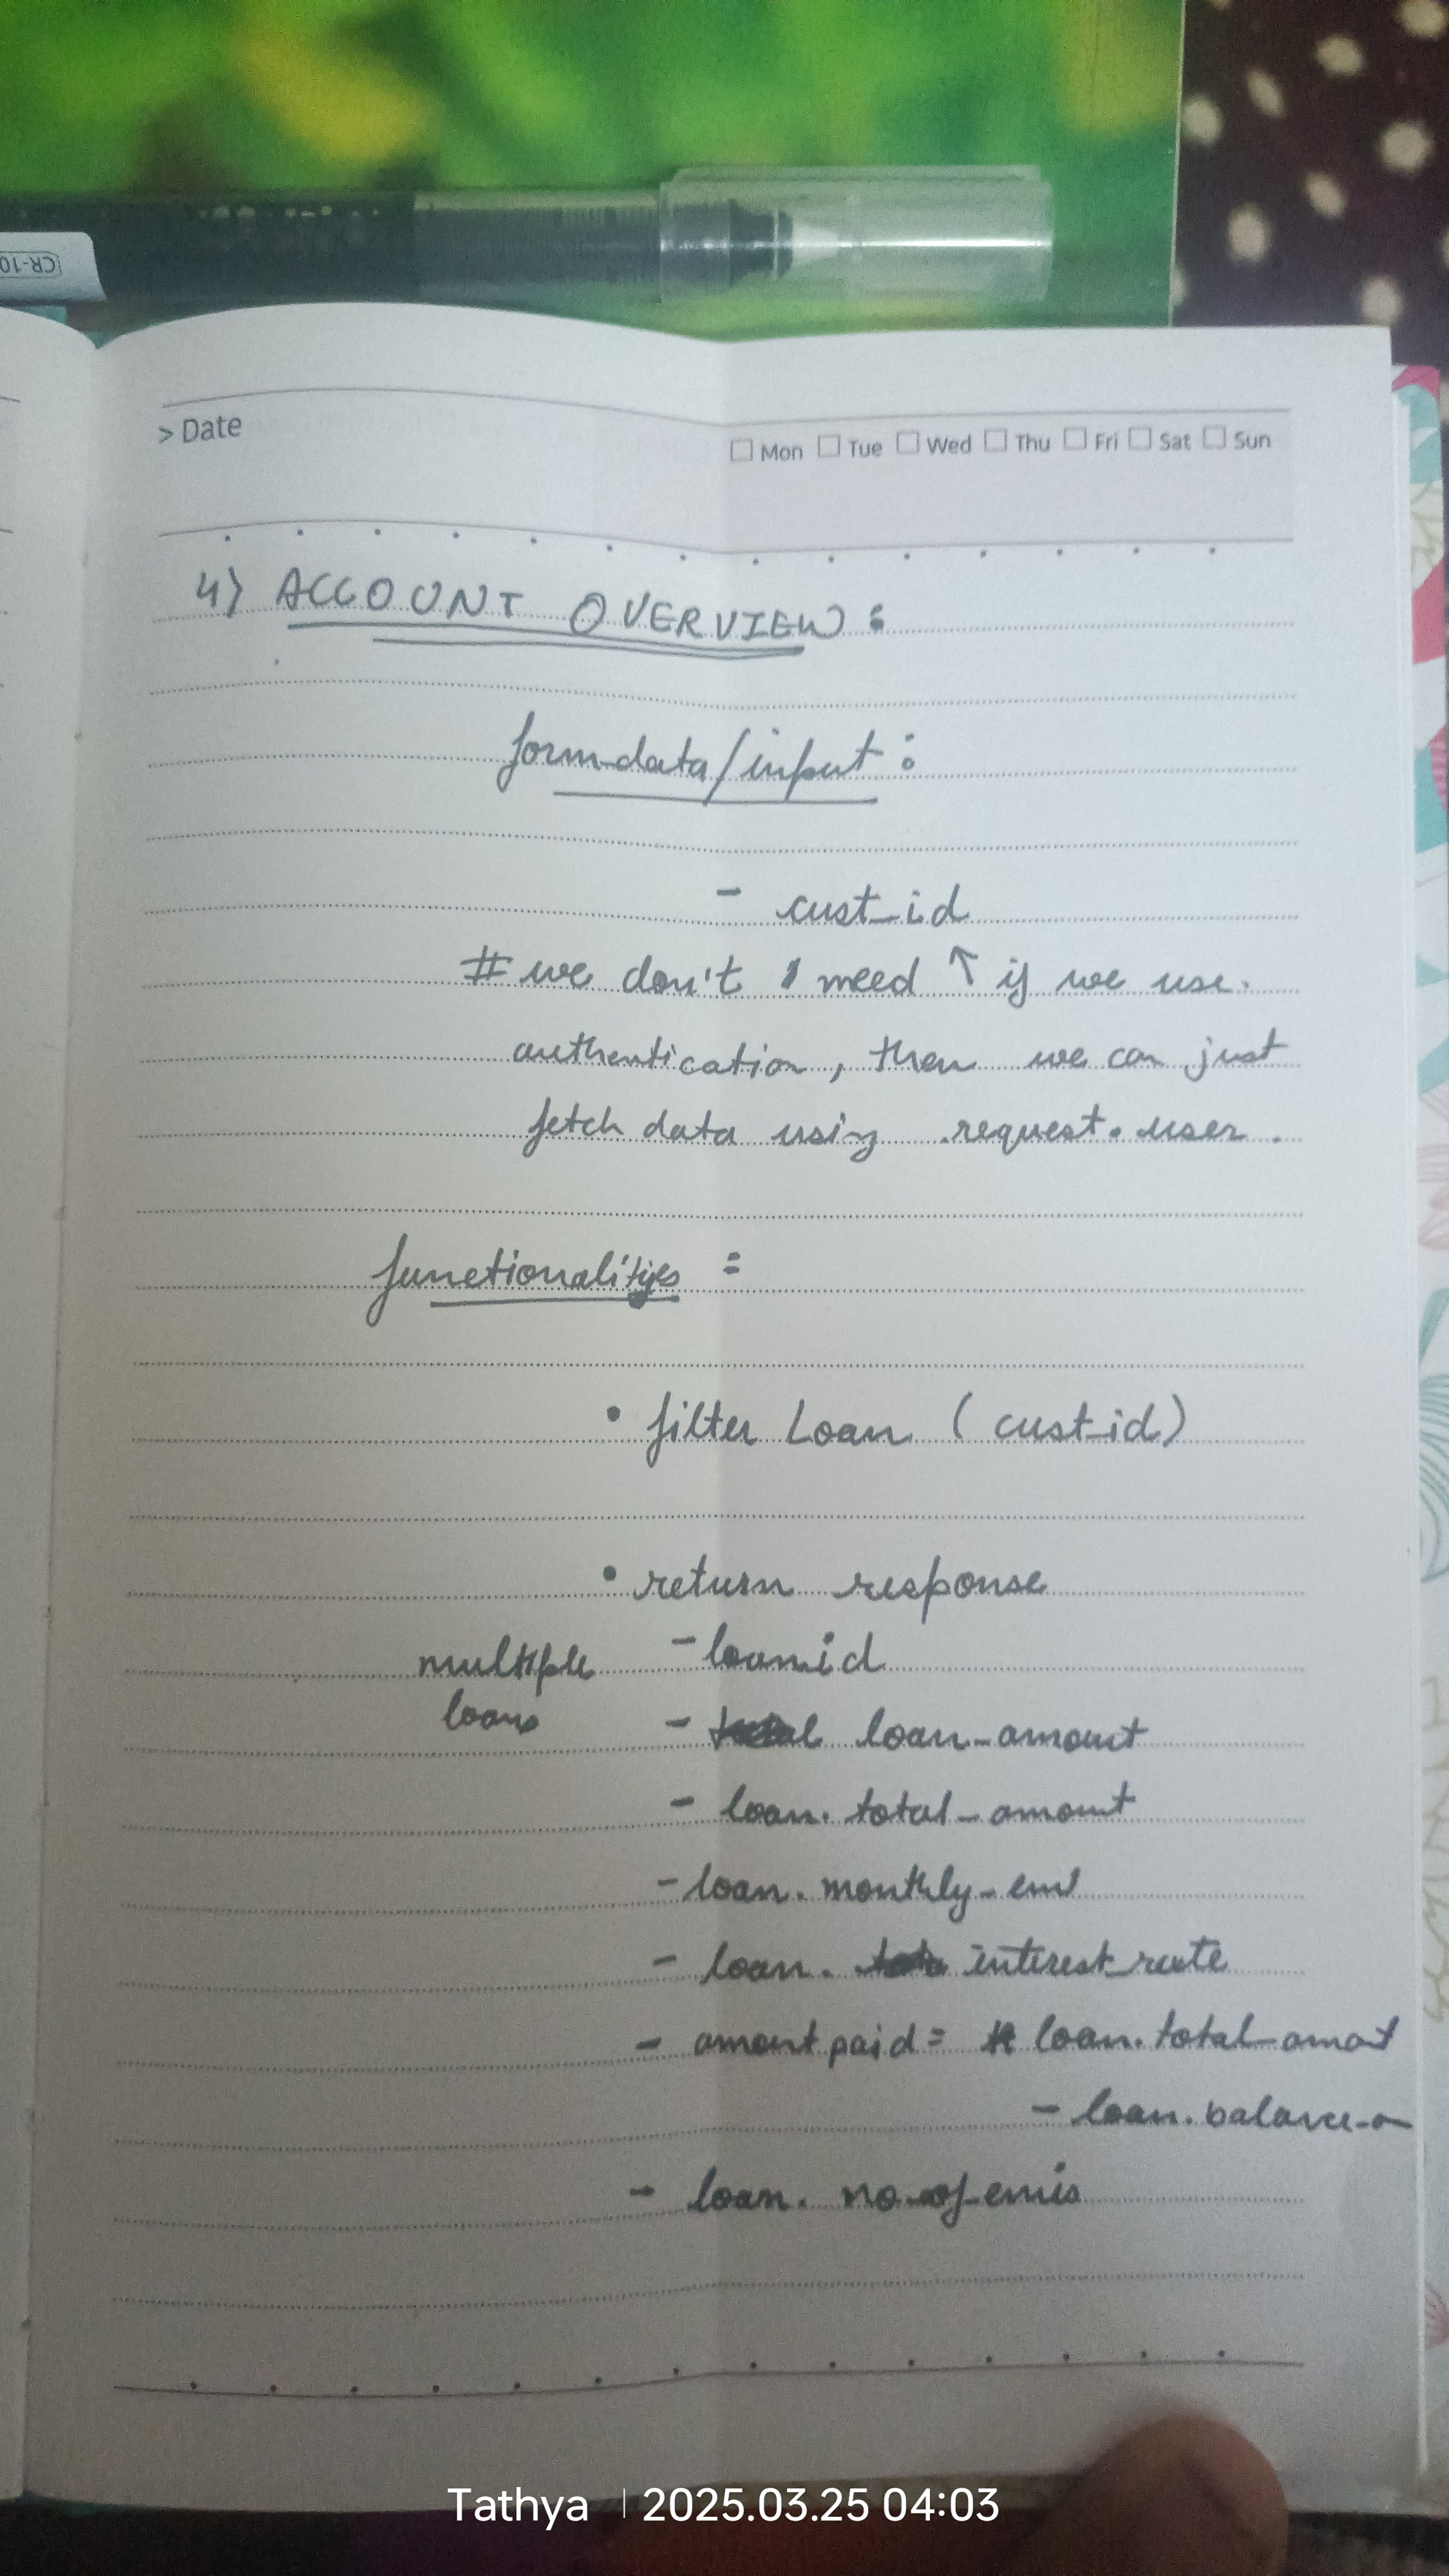 CR-10
> Date
Mon Tue Wed Thu Fri Sat Sun
4) ACCOUNT OVERVIEW :
form-data/input :
- cust_id
# we don't need ↑ if we use.
authentication, then we can just
fetch data using request.user.
functionalities :
• filter Loan (cust_id)
• return response
multiple - loan.id
loans - loan_amount
- loan.total_amount
- loan.monthly_emi
- loan. interest_rate
- amount paid = loan.total_amount
- loan.balance_a
- loan. no_of_emis
Tathya | 2025.03.25 04:03